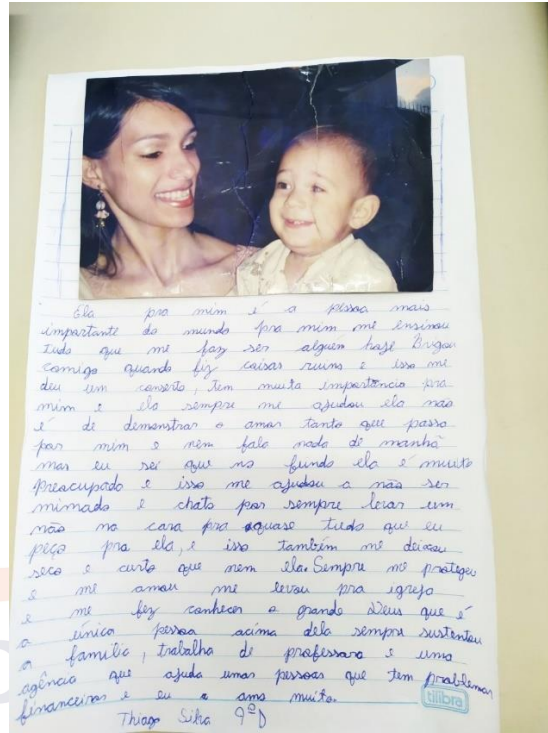 Ela pra mim é a pessoa mais
importante do mundo pra mim me ensinou
tudo que me faz ser alguem hoje Brigou
comigo quando fiz coisas ruins e isso me
deu um conserto, tem muita importância pra
mim e ela sempre me ajudou ela não
é de demonstrar o amor tanto que passa
por mim e nem fala nada de manhã
mas eu sei que no fundo ela é muito
preocupada e isso me ajudou a não ser
mimado e chato por sempre levar um
não na cara pra quase tudo que eu
peço pra ela, e isso também me deixou
seco e curto que nem ela. Sempre me protegeu
e me amou me levou pra igreja
e me fez conhecer o grande Deus que é
a única pessoa acima dela sempre sustentou
a família, trabalha de professora e uma
agência que ajuda umas pessoas que tem problemas
financeiros e eu a amo muito.
Thiago Silva 9º D
tilibra